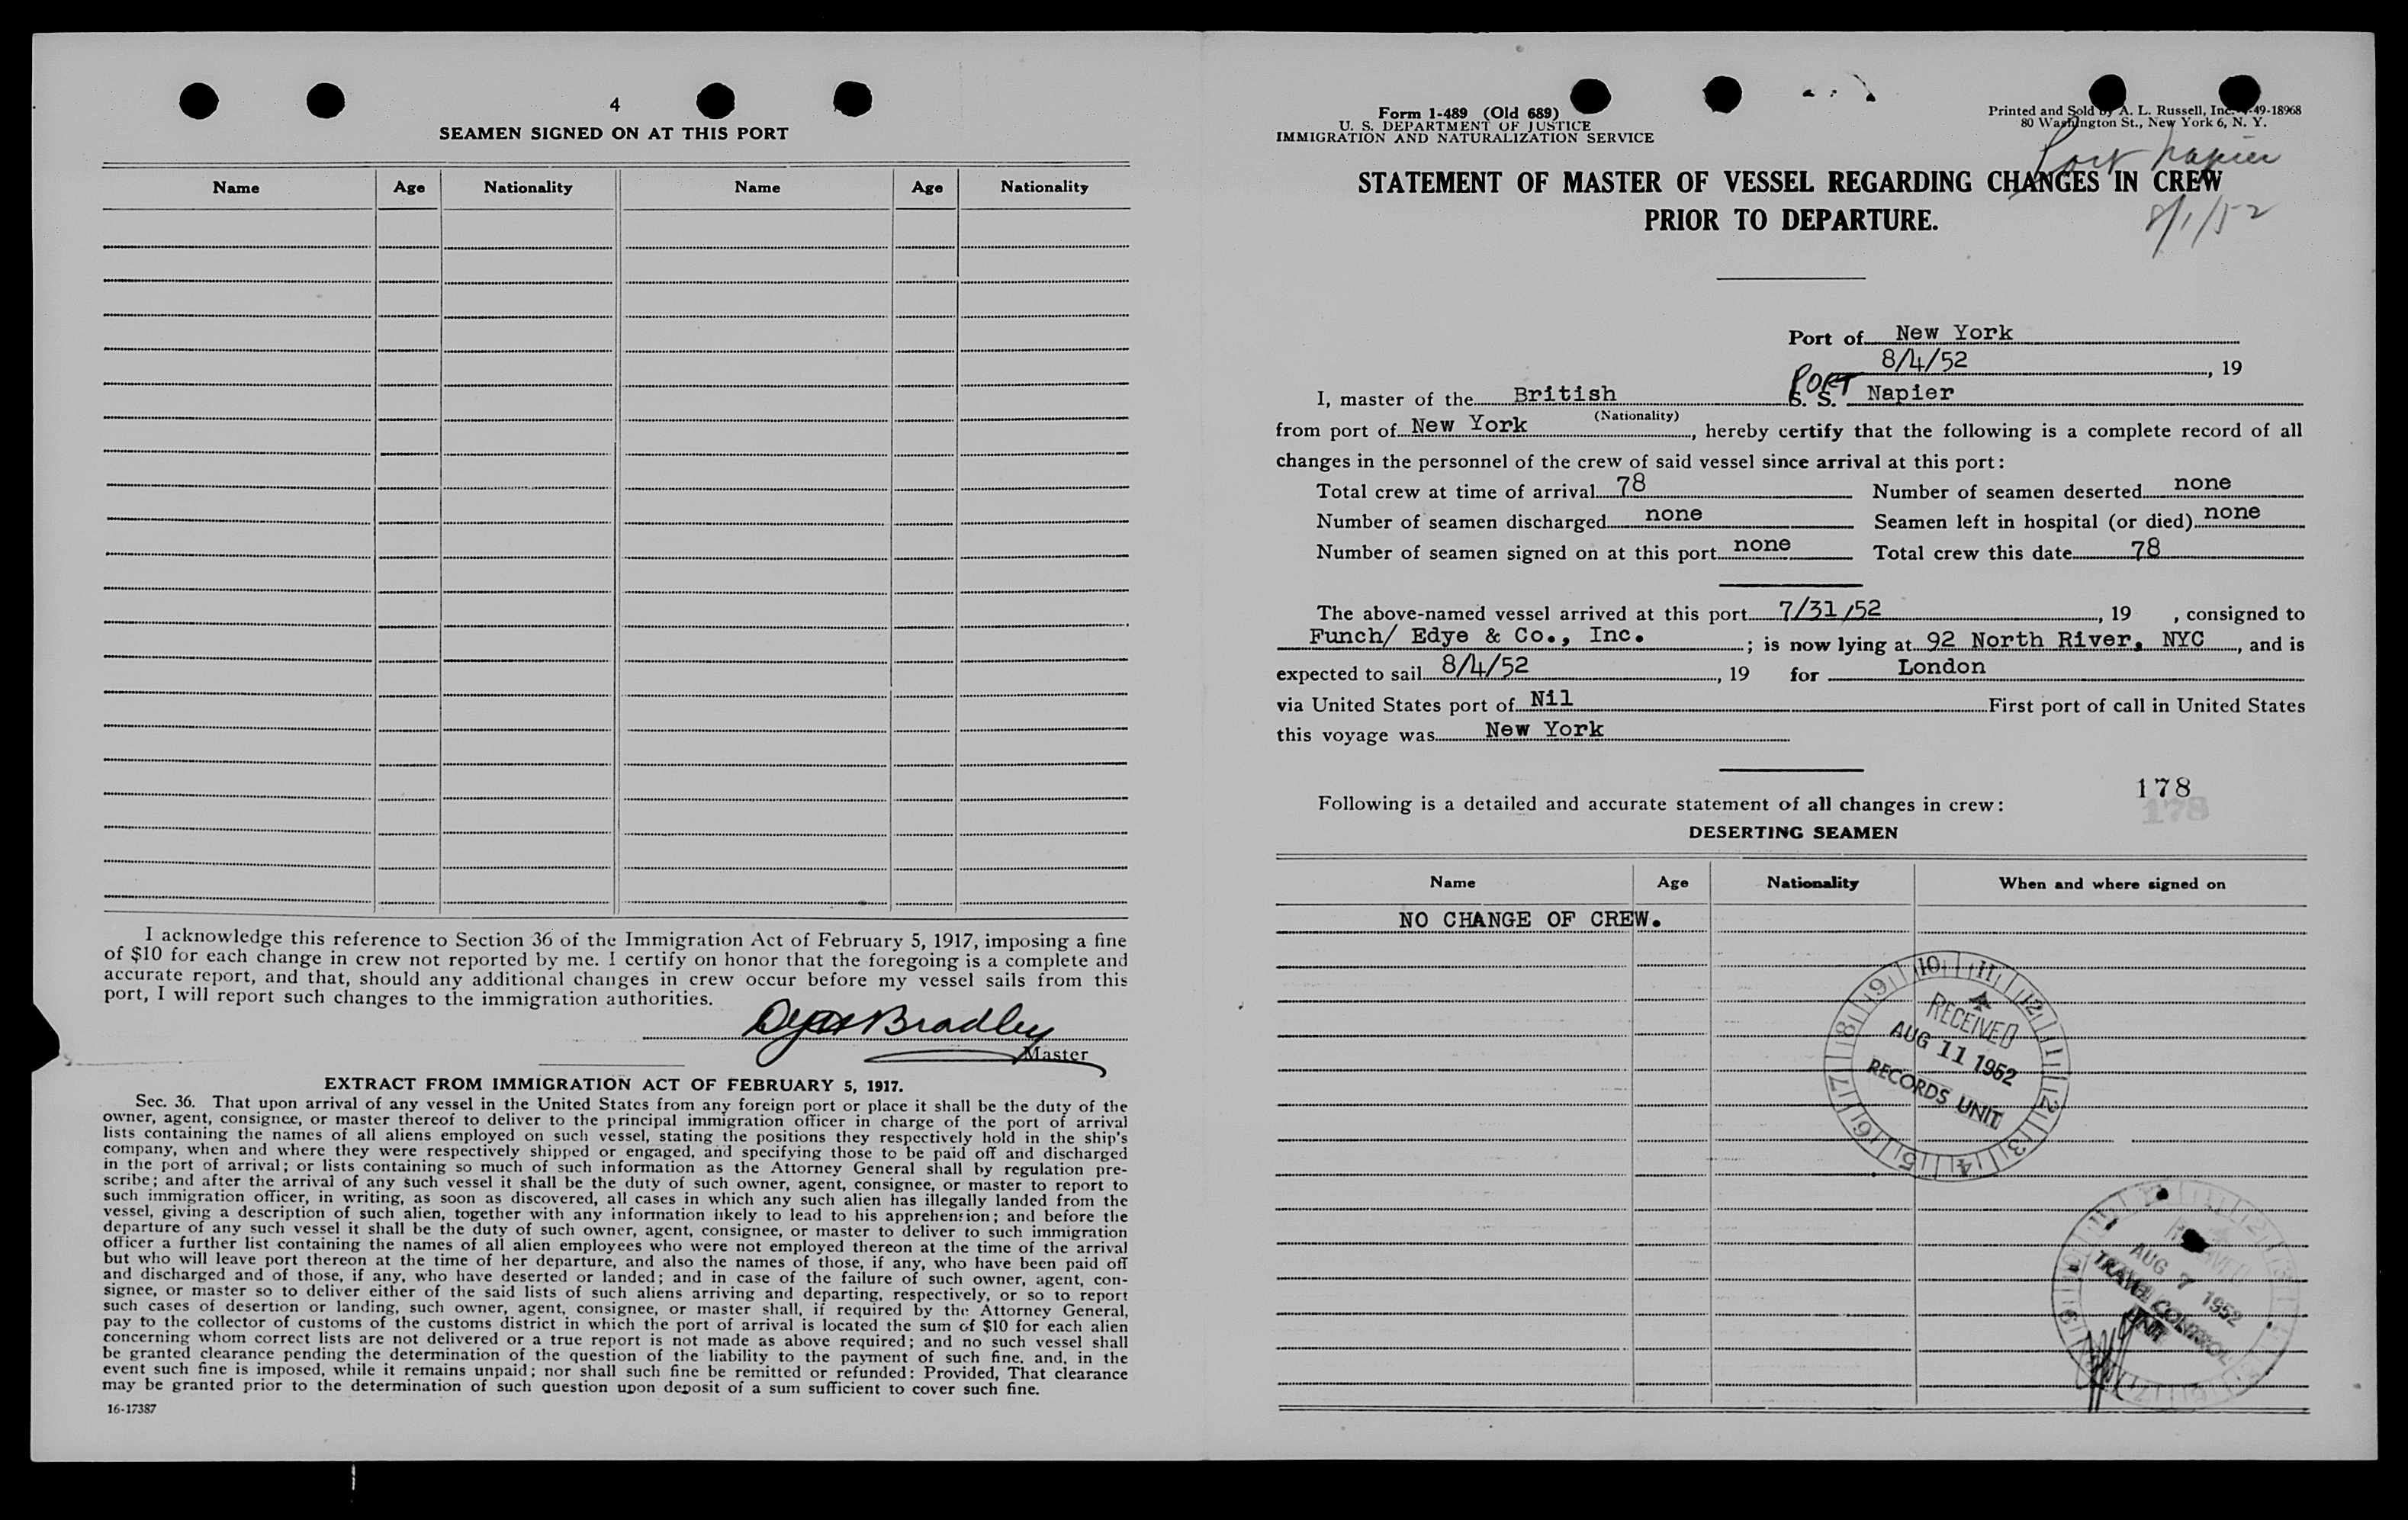 4
SEAMEN SIGNED ON AT THIS PORT
Name Age Nationality Name Age Nationality
I acknowledge this reference to Section 36 of the Immigration Act of February 5, 1917, imposing a fine
of $10 for each change in crew not reported by me. I certify on honor that the foregoing is a complete and
accurate report, and that, should any additional changes in crew occur before my vessel sails from this
port, I will report such changes to the immigration authorities.
Bradley
Master
EXTRACT FROM IMMIGRATION ACT OF FEBRUARY 5, 1917.
Sec. 36. That upon arrival of any vessel in the United States from any foreign port or place it shall be the duty of the
owner, agent, consignee, or master thereof to deliver to the principal immigration officer in charge of the port of arrival
lists containing the names of all aliens employed on such vessel, stating the positions they respectively hold in the ship's
company, when and where they were respectively shipped or engaged, and specifying those to be paid off and discharged
in the port of arrival; or lists containing so much of such information as the Attorney General shall by regulation pre-
scribe; and after the arrival of any such vessel it shall be the duty of such owner, agent, consignee, or master to report to
such immigration officer, in writing, as soon as discovered, all cases in which any such alien has illegally landed from the
vessel, giving a description of such alien, together with any information likely to lead to his apprehension; and before the
departure of any such vessel it shall be the duty of such owner, agent, consignee, or master to deliver to such immigration
officer a further list containing the names of all alien employees who were not employed thereon at the time of the arrival
but who will leave port thereon at the time of her departure, and also the names of those, if any, who have been paid off
and discharged and of those, if any, who have deserted or landed; and in case of the failure of such owner, agent, con-
signee, or master so to deliver either of the said lists of such aliens arriving and departing, respectively, or so to report
such cases of desertion or landing, such owner, agent, consignee, or master shall, if required by the Attorney General,
pay to the collector of customs of the customs district in which the port of arrival is located the sum of $10 for each alien
concerning whom correct lists are not delivered or a true report is not made as above required; and no such vessel shall
be granted clearance pending the determination of the question of the liability to the payment of such fine, and, in the
event such fine is imposed, while it remains unpaid; nor shall such fine be remitted or refunded: Provided, That clearance
may be granted prior to the determination of such question upon deposit of a sum sufficient to cover such fine.
16-17387
Form 1-489 (Old 689)
U. S. DEPARTMENT OF JUSTICE
IMMIGRATION AND NATURALIZATION SERVICE
Printed and Sold by A. L. Russell, Inc. 49-18968
80 Washington St., New York 6, N. Y.
Port Napier
STATEMENT OF MASTER OF VESSEL REGARDING CHANGES IN CREW
PRIOR TO DEPARTURE.
8/1/52
Port of New York
8/4/52, 19
I, master of the British PORT S. S. Napier
(Nationality)
from port of New York, hereby certify that the following is a complete record of all
changes in the personnel of the crew of said vessel since arrival at this port:
Total crew at time of arrival 78 Number of seamen deserted none
Number of seamen discharged none Seamen left in hospital (or died) none
Number of seamen signed on at this port none Total crew this date 78
The above-named vessel arrived at this port 7/31/52, 19 , consigned to
Funch/ Edye & Co., Inc. ; is now lying at 92 North River, NYC, and is
expected to sail 8/4/52, 19 for London
via United States port of Nil First port of call in United States
this voyage was New York
178
178
Following is a detailed and accurate statement of all changes in crew:
DESERTING SEAMEN
Name Age Nationality When and where signed on
NO CHANGE OF CREW.
10 11 12 1 2 3 4 5 6 7 8 9
RECEIVED
AUG 11 1952
RECORDS UNIT
RECEIVED
AUG 7 1952
TRAVEL CONTROL
UNIT